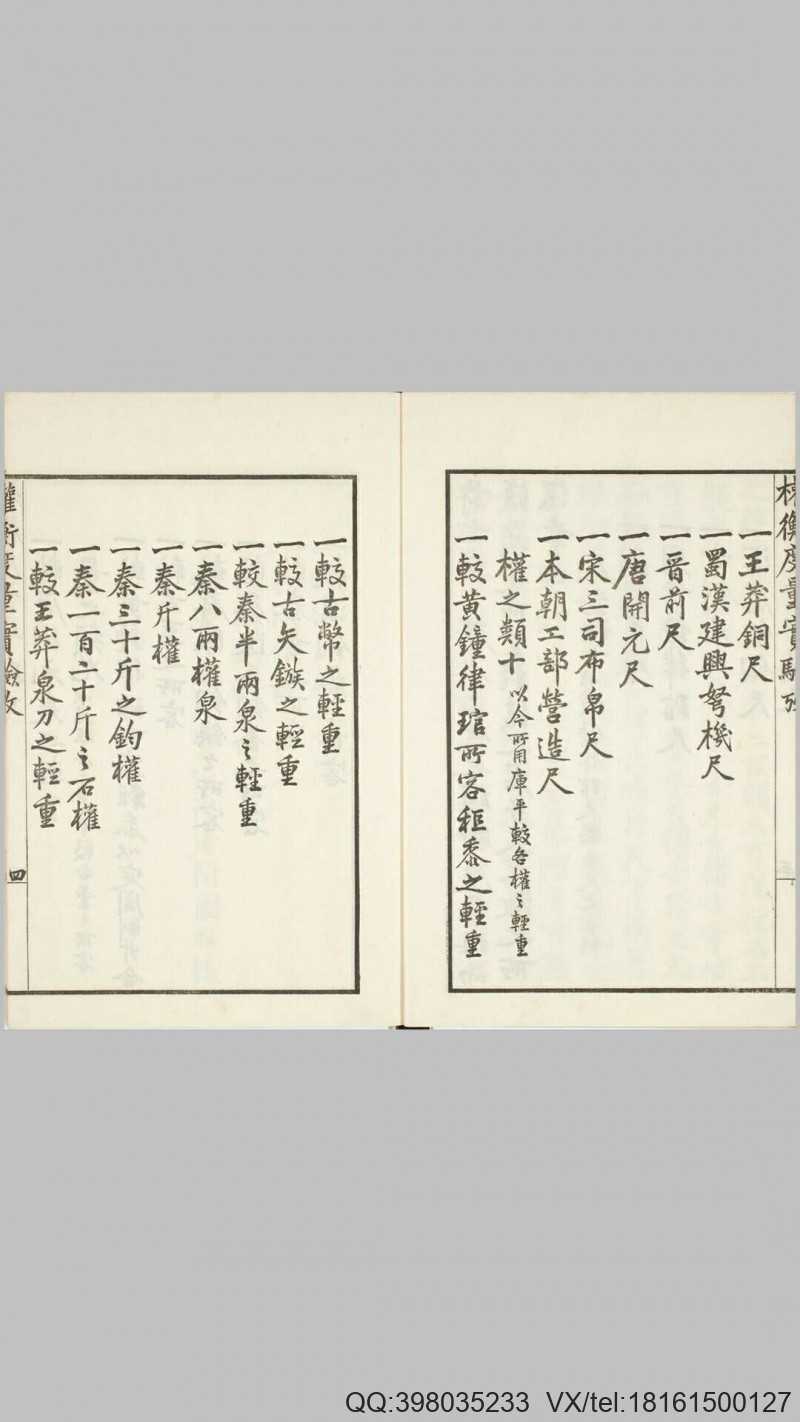 權衡度量實驗攷
一王莽銅尺
一蜀漢建興弩機尺
一晉前尺
一唐開元尺
一宋三司布帛尺
一本朝工部營造尺
權之類十 以今所用庫平較各權之輕重
一較黃鐘律琯所容秬黍之輕重
一較古幣之輕重
一較古矢鏃之輕重
一較秦半兩泉之輕重
一秦八兩權泉
一秦斤權
一秦三十斤之鈞權
一秦一百二十斤之石權
一較王莽泉刀之輕重
權衡度量實驗攷
四
QQ:398035233 VX/tel:18161500127